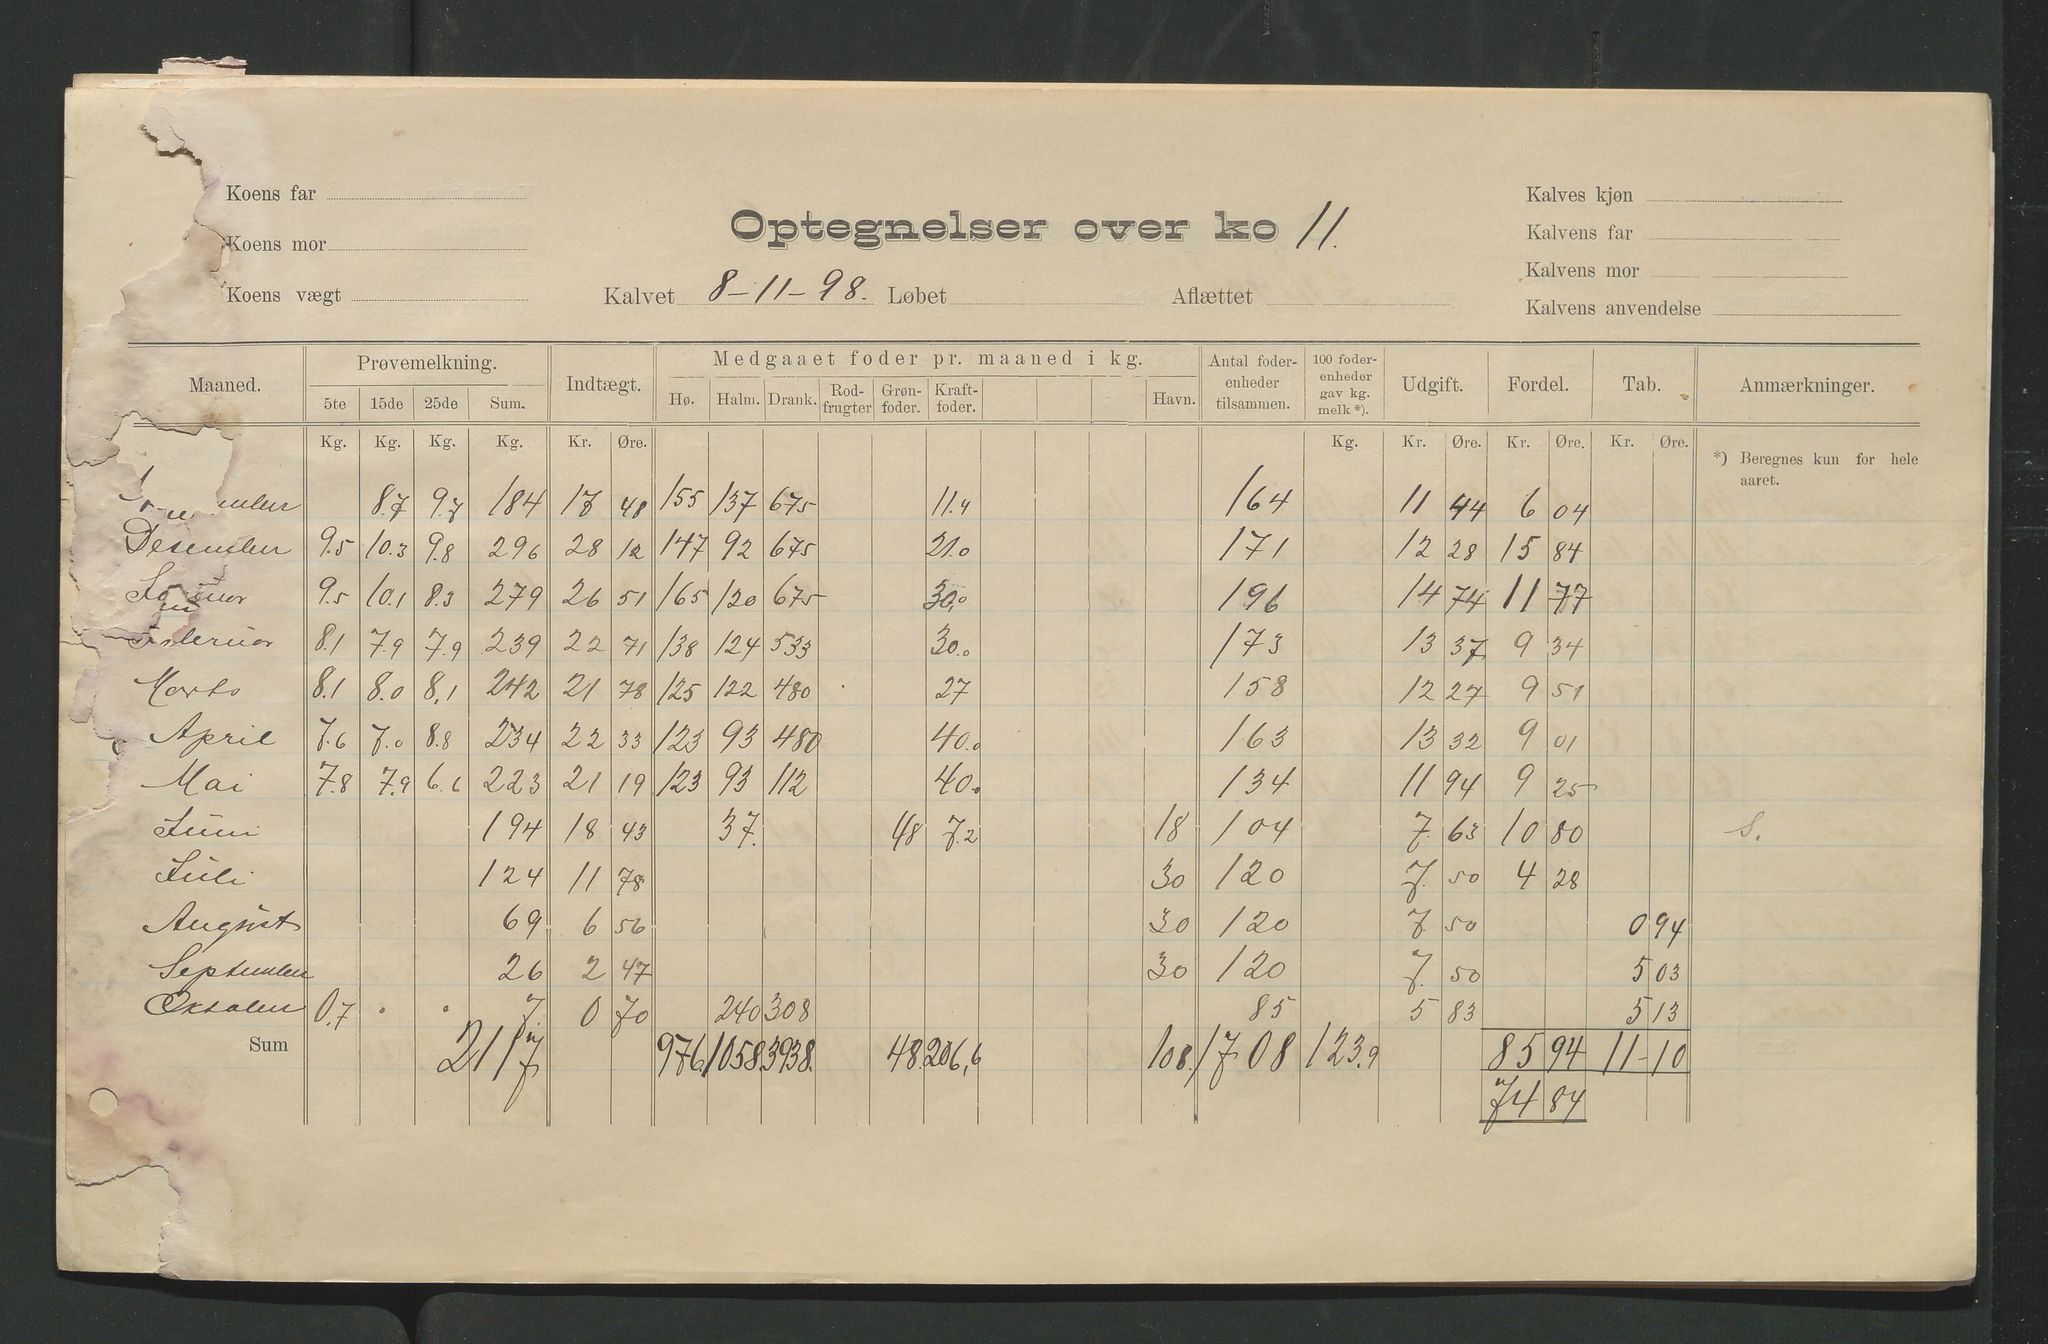 Koens far
Koens mor
Koens vægt
Optegnelser over ko 11.
Kalvet 8-11-98. Løbet Aflættet
Kalves kjøn
Kalvens far
Kalvens mor
Kalvens anvendelse
Maaned. Prøvemelkning. Indtægt. Medgaaet foder pr. maaned i kg. Antal foder-enheder tilsammen. 100 foder-enheder gav kg. melk *). Udgift. Fordel. Tab. Anmærkninger.
5te 15de 25de Sum. Hø. Halm. Drank. Rod-frugter Grøn-foder. Kraft-foder. Havn.
Kg. Kg. Kg. Kg. Kr. Øre. Kg. Kr. Øre. Kr. Øre. Kr. Øre.
*) Beregnes kun for hele aaret.
8.7 9.7 184 17 48 155 137 675 11.4 164 11 44 6 04
Desember 9.5 10.3 9.8 296 28 12 147 92 675 21.0 171 12 28 15 84
Januar 9.5 10.1 8.3 279 26 51 165 120 675 30.0 196 14 74 11 77
Februar 8.1 7.9 7.9 239 22 71 138 124 533 30.0 173 13 37 9 34
Marts 8.1 8.0 8.1 242 21 78 125 122 480 27 158 12 27 9 51
April 7.6 7.0 8.8 234 22 33 123 93 480 40.0 163 13 32 9 01
Mai 7.8 7.9 6.6 223 21 19 123 93 112 40.0 134 11 94 9 25
Juni 194 18 43 37. 48 7.2 18 104 7. 63 10 80 S.
Juli 124 11 78 30 120 7. 50 4 28
August 69 6 56 30 120 7. 50 0 94
September 26 2 47 30 120 7. 50 5 03
Oktober 0.7 " " 7 0 70 240 308 85 5 83 5 13
Sum 2117 976. 1058. 3938. 48. 206,6 108. 1708 123.9 85 94 11-10
74 84